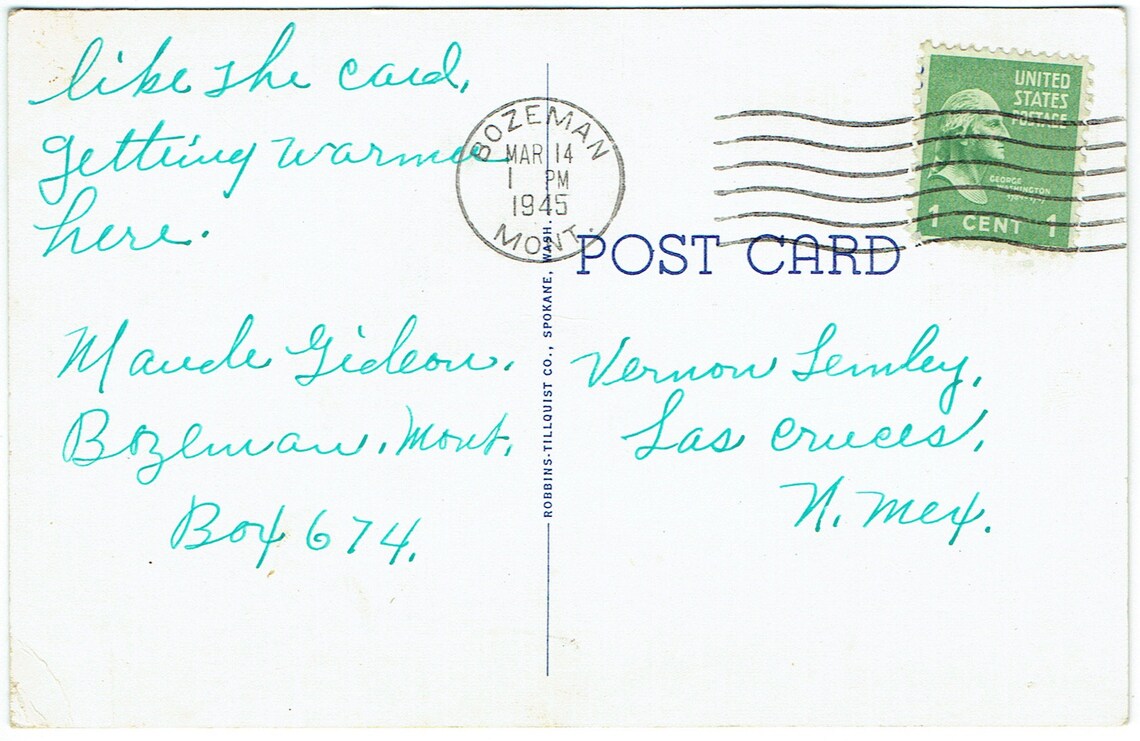 like the card,
Getting warmer
here.
Maude Gideon.
Bozeman, Mont.
Box 674.
BOZEMAN
MAR 14
1 PM
1945
MONT.
ROBBINS-TILLQUIST CO., SPOKANE, WASH.
UNITED
STATES
POSTAGE
GEORGE
WASHINGTON
1 CENT 1
POST CARD
Vernon Lemley,
Las Cruces,
N. Mex.